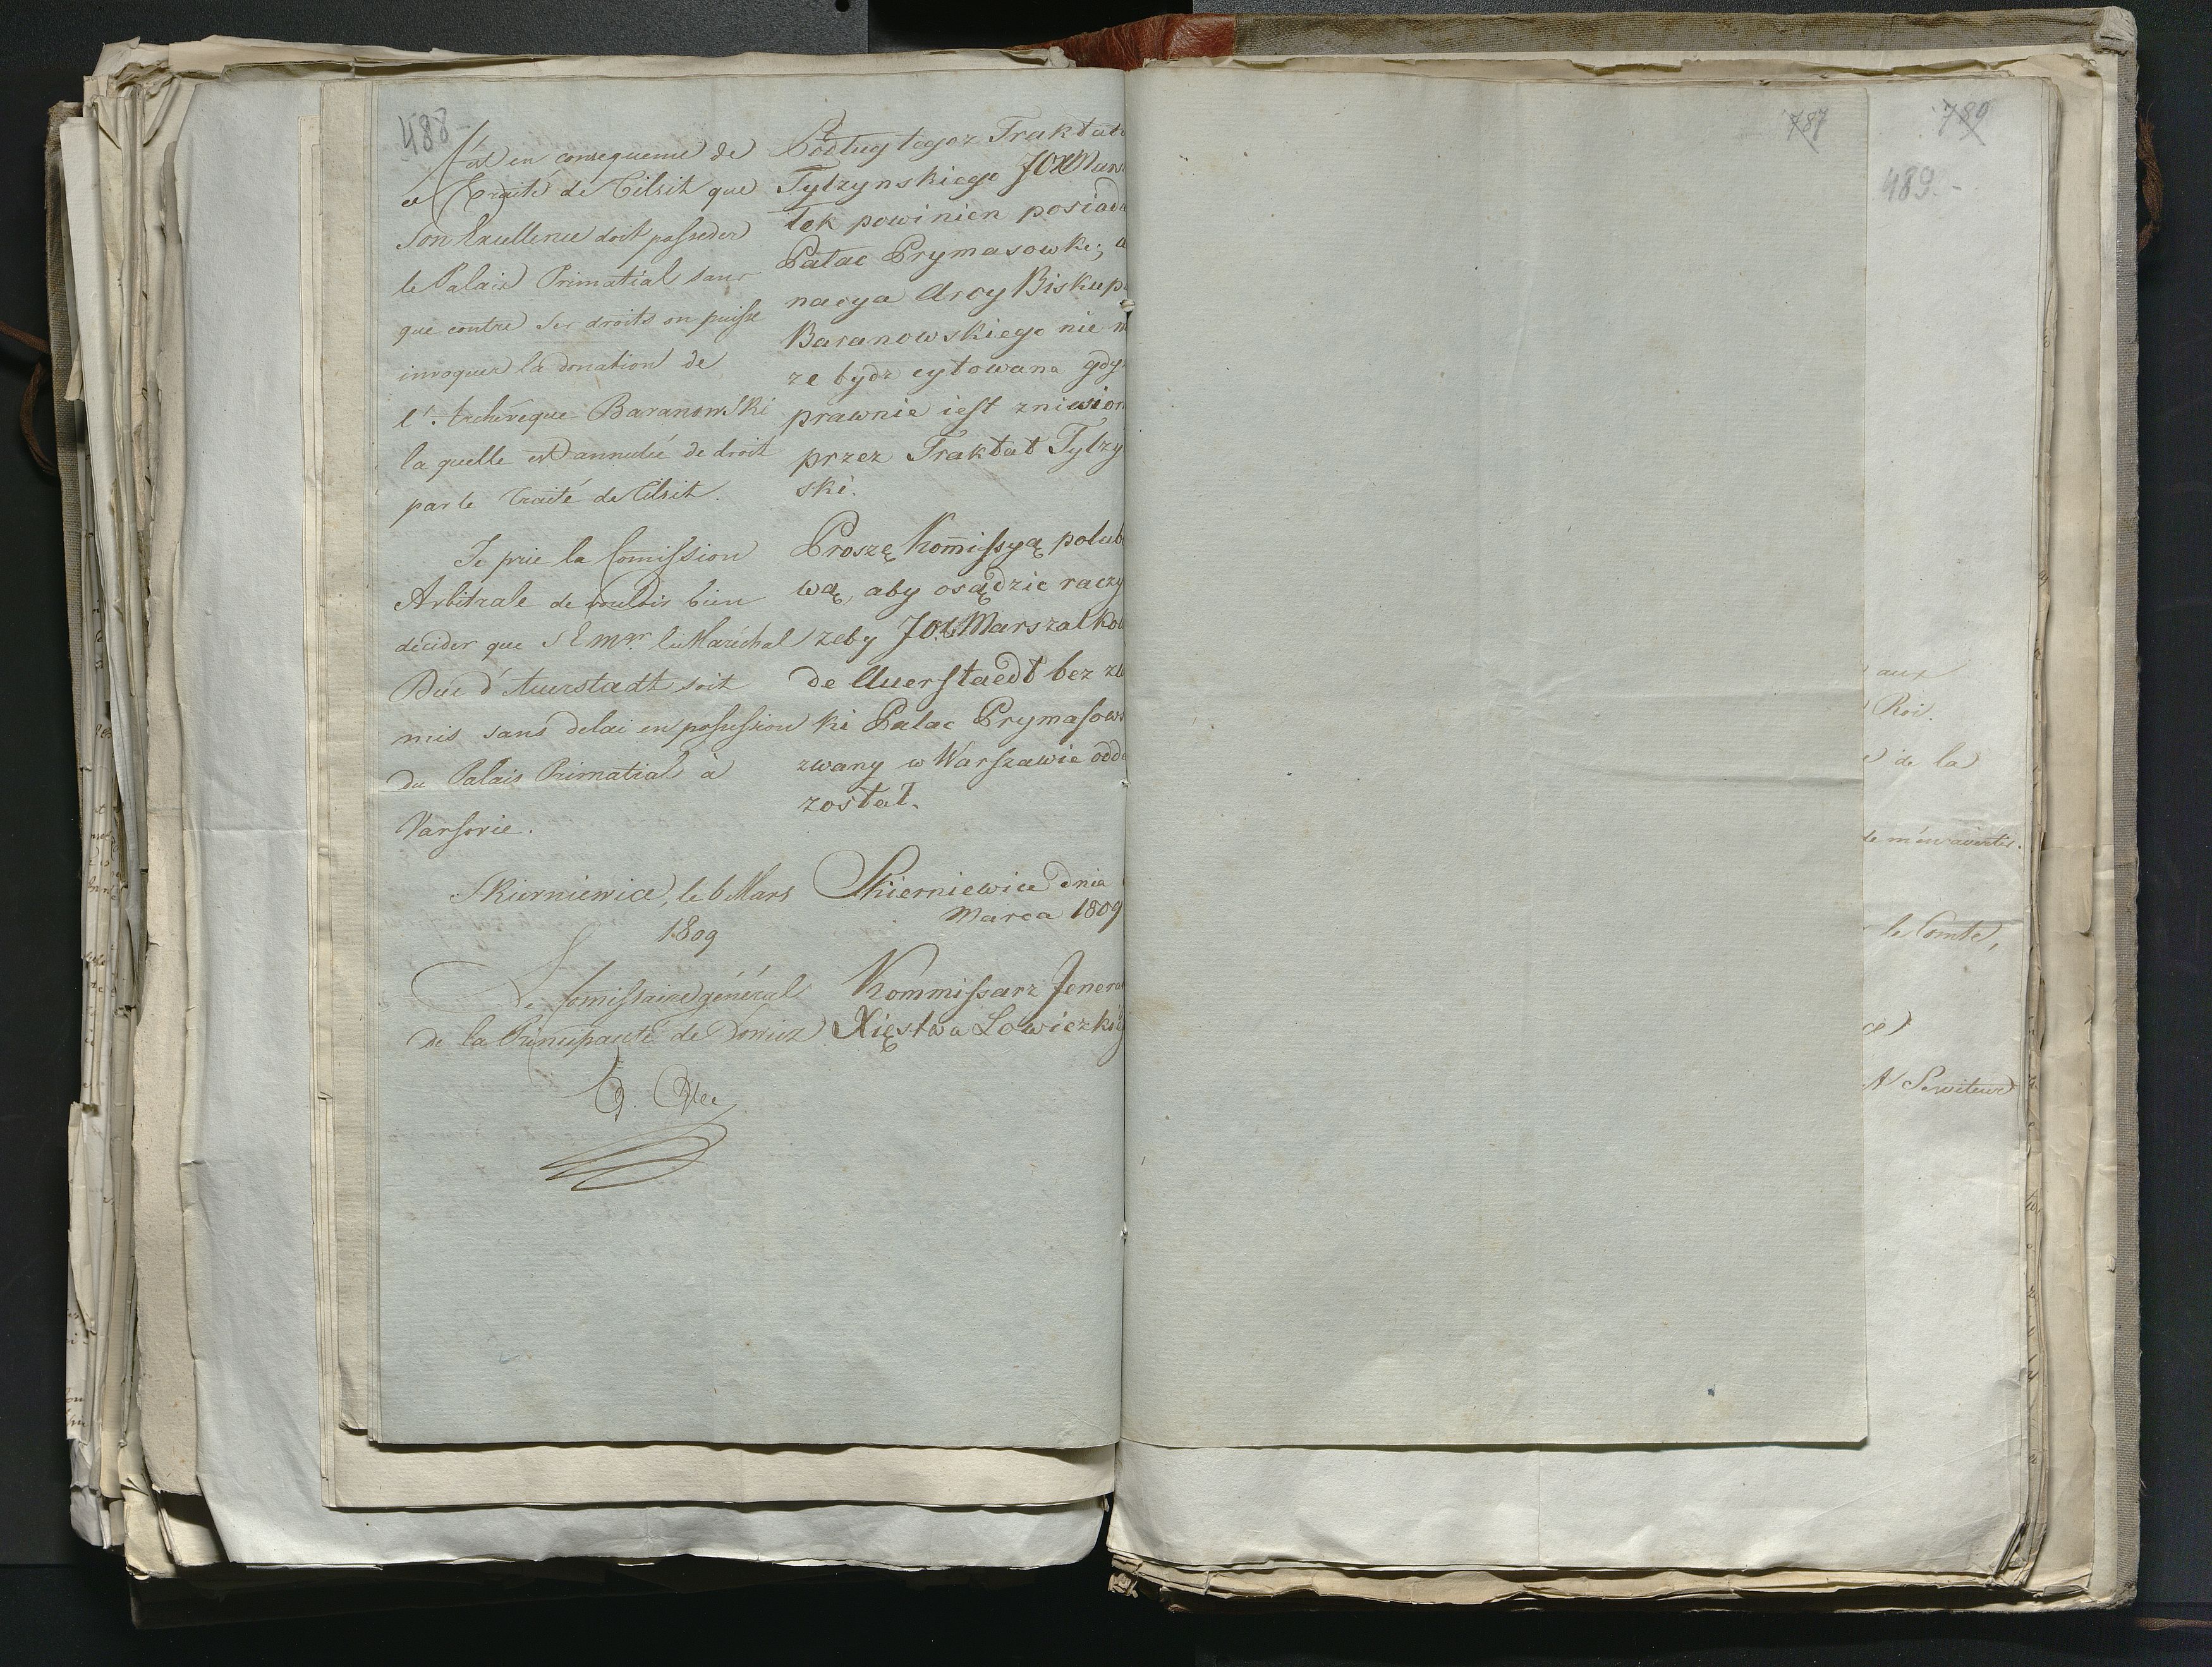 488
C'est en consequence de
ce Traité de Tilsit que
Son Excellence doit posseder
le Palais Primatial sans
que contre ses droits on puisse
invoquer la donation de
l'Archéveque Baranowski
la quelle est annulée de droit
par le Traité de Tilsit.
Je prie la Comission
Arbitrale de vouloir bien
décider que S E Mgr. le Maréchal
Duc d'Auerstadt soit
mis sans delai en possession
du Palais Primatial à
Varsovie.
Skierniewice, le 6 Mars
1809
Le Comissaire général
de la Principauté de Lowicz
Podług tegoz Traktatu
Tylzynskiego JOX Mars
łek powinien posiada
Pałac Prymasowki; a
nacya Arcy Biskupa
Baranowskiego nie m
ze bydz cytowana gdy
prawnie iest zniesion
przez Traktat Tylzy
ski.
Proszę Kommissyą polub
wą, aby osądzic raczy
zeby JOX Marszalkow
de Auerstaedt bez zw
ki Palac Prymasows
zwany w Warszawie odd
został.
Skierniewice dnia
Marca 1809
Kommissarz Jenera
Xięstwa Lowiczkieg
787
789
489.-
aux
Roi.
de la
de m'en avertir.
le Comte,
Serviteur